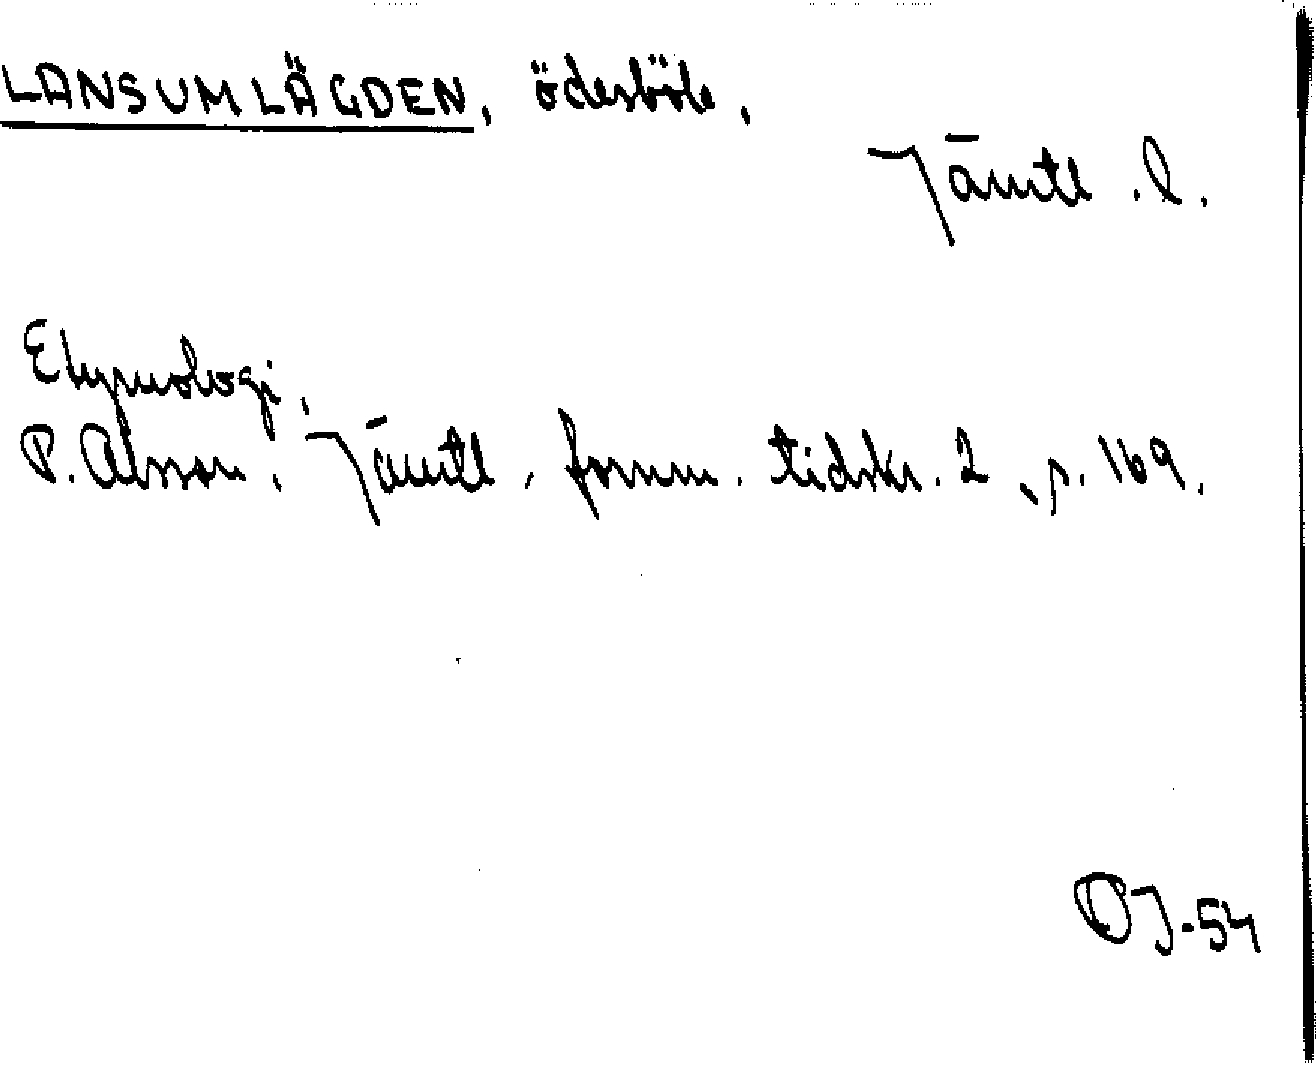 LANSUMLÄGDEN, ödesböle,
Jämtl. l.
Etymologi,
P. Olsson, Jämtl. fornm. tidskr. 2, p. 169.
OJ-54